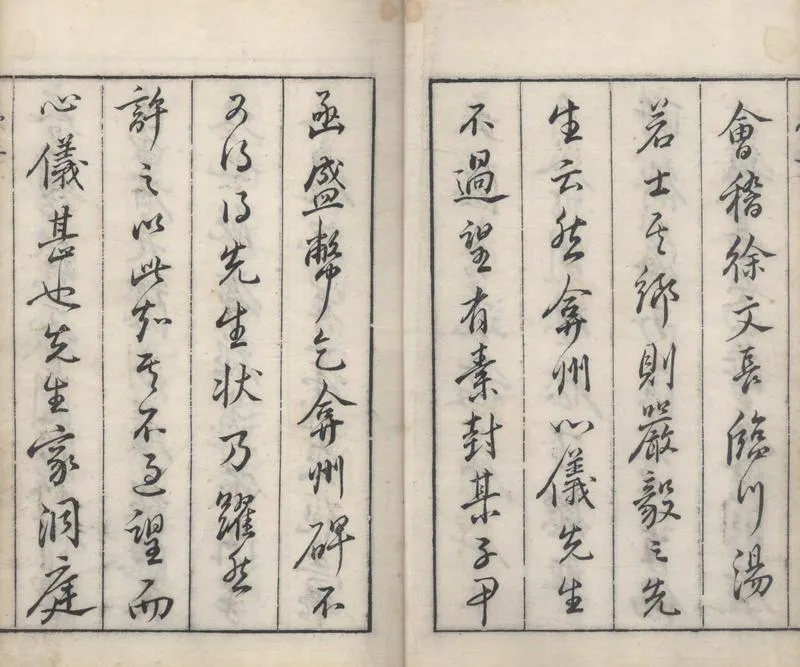 會稽徐文長臨川湯
若士其鄉則嚴毅之先
生云然弇州心儀先生
不過望有素封某子甲
函盛幣乞弇州碑不
可得得先生狀乃躍然
許之以此知其不過望而
心儀甚也先生家洞庭